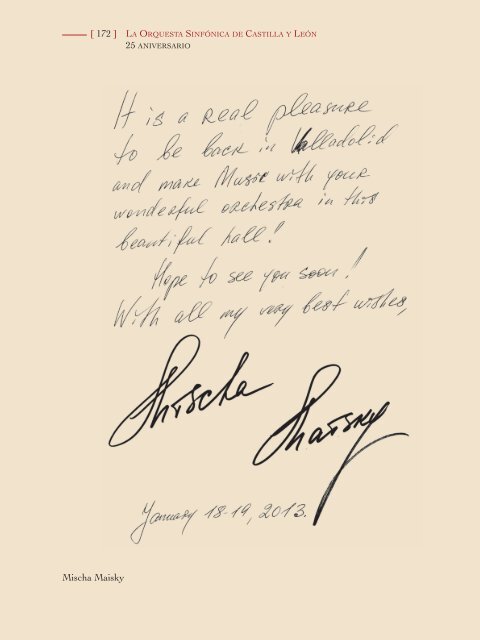 [ 172 ] La Orquesta Sinfónica de Castilla y León
25 aniversario
It is a real pleasure
to be back in Valladolid
and make Music with your
wonderful orchestra in this
beautiful hall!
Hope to see you soon!
With all my very best wishes,
Mischa
Maisky
January 18-19, 2013.
Mischa Maisky